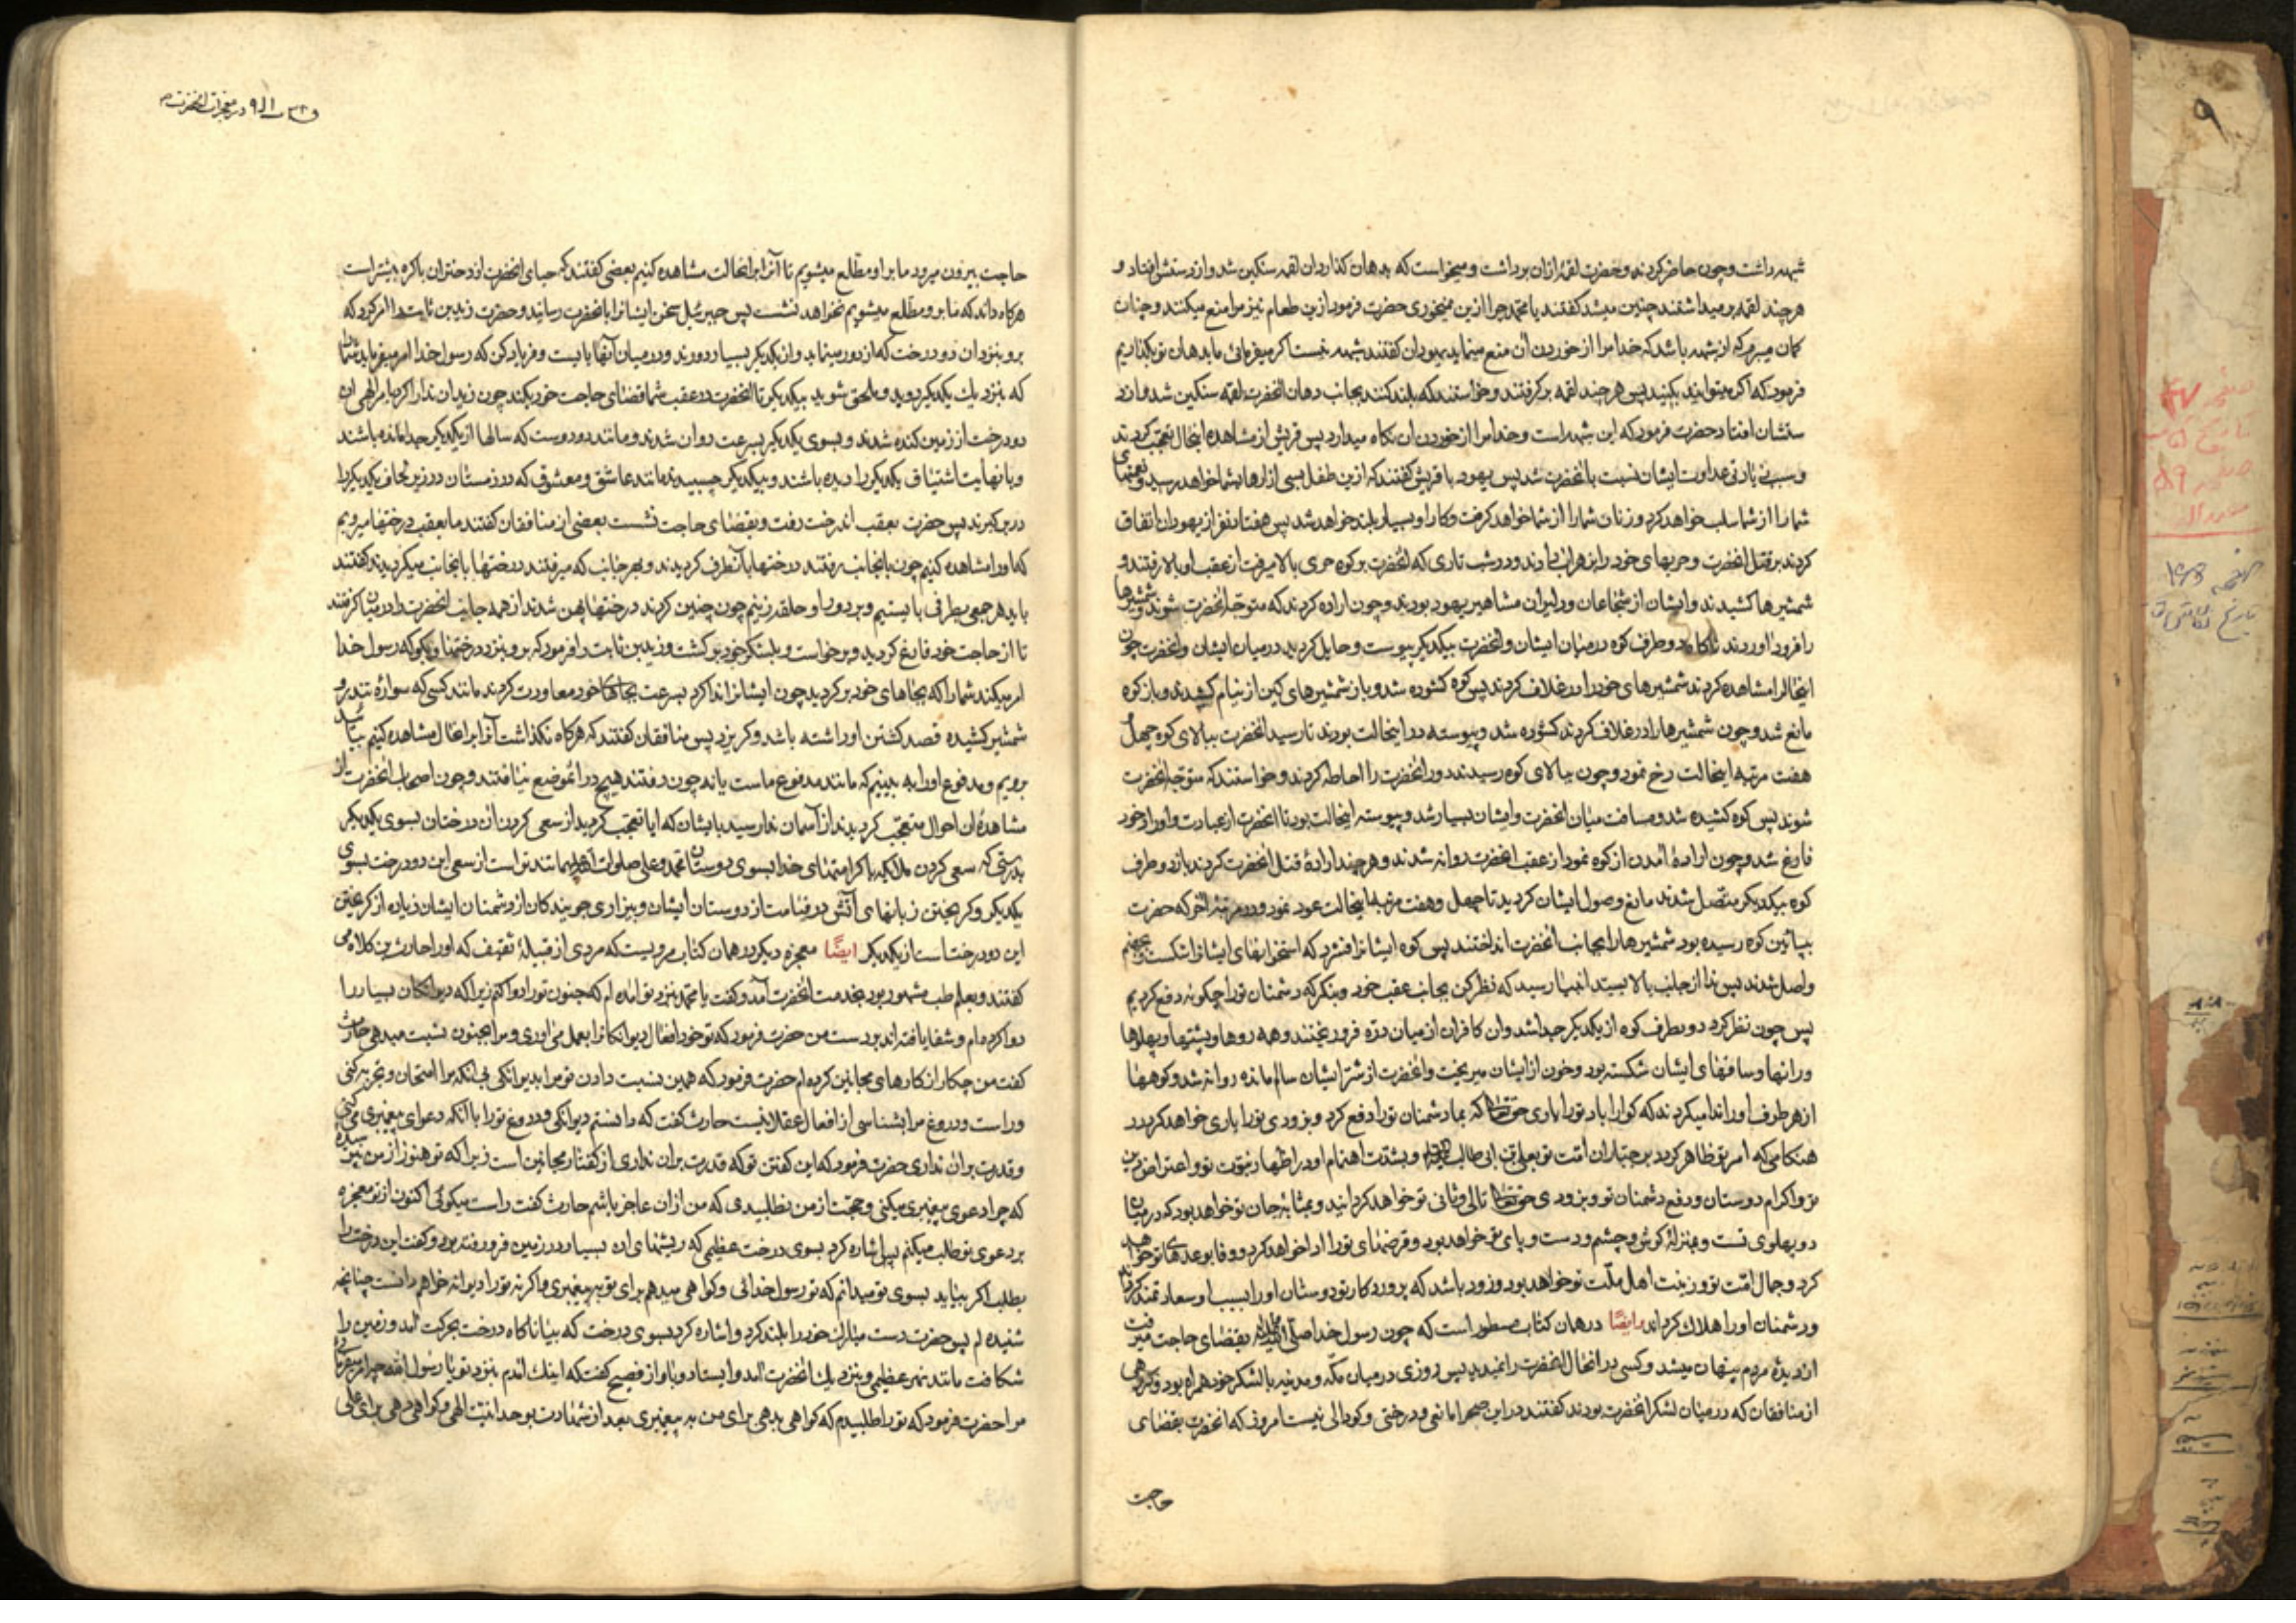 شبهه داشت و چون حاضر کردند و حضرت لقمهٔ ازان برداشت و میخواست که بدهان گذارد ان لقمه سنکین شد و از دستش افتاد و
هر چند لقمه بر میداشتند چنین میشد کفتند یا محمد چرا ازین نمیخوری حضرت فرمود ازین طعام نیز مرا منع میکنند و چنان
کمان میبرم که از شبهه باشد که خدا مرا از خوردن ان منع مینماید یهودان کفتند شبهه نیست اکر میفرمائی ما بدهان تو بکذاریم
فرمود که اکر میتوانید بکنید پس هر چند لقمه بر کرفتند و خواستند که بلند کنند بجانب دهان انحضرت لقمه سنکین شد و از د
ستشان افتاد حضرت فرمود که این شبهه است و خدا مرا از خوردن ان نکاه میدارد پس قریش از مشاهده اینحال تعجب کردند
و سبب زیادتی عداوت ایشان نسبت بانحضرت شد پس یهود با قریش کفتند که ازین طفل بسی ازارها بشما خواهد رسید و نعمتهای
شما را از شما سلب خواهد کرد و زنان شما را از شما خواهد کرفت و کار او بسیار بلند خواهد شد پس هفتاد نفر از یهودان اتفاق
کردند بر قتل انحضرت و حربهای خود را بزهر اب دادند و در شب تاری که انحضرت بر کوه حری بالا میرفت از عقب او بالا رفتند و
شمشیرها کشیدند و ایشان از شجاعان و دلیران مشاهیر یهود بودند و چون اراده کردند که متوجه انحضرت شوند و شمشیرها
را فرود اوردند ناکاه دو طرف کوه در میان ایشان و انحضرت بیکدیکر پیوست و حایل کردید در میان ایشان و انحضرت چون
اینحالرا مشاهده کردند شمشیرهای خود را در غلاف کردند پس کوه کشوده شد و باز شمشیرهای کین از نیام کشیدند و باز کوه
مانع شد و چون شمشیرها را در غلاف کردند کشوده شد و پیوسته در اینحالت بودند تا رسید انحضرت ببالای کوه چهل
هفت مرتبه اینحالت رخ نمود و چون ببالای کوه رسیدند دور انحضرت را احاطه کردند و خواستند که متوجه انحضرت
شوند پس کوه کشیده شد و مسافت میان انحضرت و ایشان بسیار شد و پیوسته اینحالت بود تا انحضرت از عبادت و اوراد خود
فارغ شد و چون ارادهٔ امدن از کوه نمود از عقب انحضرت روانه شدند و هر چند ارادهٔ قتل انحضرت کردند باز دو طرف
کوه بیکدیکر متصل شدند مانع وصول ایشان کردید تا چهل و هفت مرتبه اینحالت عود نمود و در مرتبهٔ اخر که حضرت
بپائین کوه رسیده بود شمشیرها را بجانب انحضرت انداختند پس کوه ایشانرا فشرد که استخوانهای ایشانرا شکست و بجهنم
واصل شدند پس ندا از جانب بالا بسید انبیا رسید که نظر کن بجانب عقب خود و بنکر که دشمنان تو را چکونه دفع کردیم
پس چون نظر کرد دو طرف کوه از یکدیکر جدا شد وان کافران از میان دره فرو ریختند و همه روها و پشتها و پهلوها
و رانها و ساقهای ایشان شکسته بود و خون از ایشان میریخت و انحضرت از شر ایشان سالم مانده روانه شد و کوهها
از هر طرف او را ندا میکردند که کوارا باد تو را یاری حق تعالی که بما دشمنان تو را دفع کرد و بزودی تو را یاری خواهد کرد در
هنکامی که امر تو ظاهر کردد بر جباران امت تو بعلی بن ابی طالب و بشدت اهتمام او در اظهار نبوت تو و اعزاز دین
تو و اکرام دوستان و دفع دشمنان تو و بزودی حق تعالی او را تالی و ثانی تو خواهد کردانید و بمثابهٔ جان تو خواهد بود که در میان
دو پهلوی تست و بمنزلهٔ کوش و چشم و دست و پای تو خواهد بود و قرضهای تو را ادا خواهد کرد و وفا بوعدهای تو خواهد
کرد و جمال امت تو و زینت اهل ملت تو خواهد بود و زود باشد که پروردکار تو دوستان او را بسبب او سعادتمند کرداند
و دشمنان او را هلاک کرداند ایضًا در همان کتاب مسطور است که چون رسول خدا صلی الله علیه و اله بقضای حاجت میرفت
از دیدهٔ مردم پنهان میشد و کسی در انحال انحضرت را نمیدید پس روزی در میان مکه و مدینه با لشکر خود همراه بود و کروهی
از منافقان که در میان لشکر انحضرت بودند کفتند در این صحرا مانعی و درختی و کودالی نیست امروز که انحضرت بقضای
حاجت
در معجزات انحضرت
حاجت بیرون میرود ما بر او مطلع میشویم تا آنرا برانحالت مشاهده کنیم بعضی کفتند که حیای انحضرت از دختران باکره بیشتر است
هر کاه داند که ما بر و مطلع میشویم نخواهد نشست پس جبرئیل سخن ایشانرا بانحضرت رسانید و حضرت زید بن ثابت را امر کرد که
برو بنزد ان دو درخت که از دور مینماید و از یکدیکر بسیار دورند و در میان آنها بایست و فریاد کن که رسول خدا امر میفرماید شما را
که بنزدیک یکدیکر روید و ملحق شوید بیکدیکر تا انحضرت در عقب شما قضای حاجت خود بکند چون زید ان ندا را کرد بامر الهی ان
دو درخت از زمین کنده شدند و بسوی یکدیکر بسرعت روان شدند و مانند دو دوست که سالها از یکدیکر جدا مانده باشند
و با نهایت اشتیاق یکدیکر را دیده باشند و بیکدیکر چسبیدند مانند عاشق و معشوقی که در زمستان در زیر لحاف یکدیکر را
در بر کیرند پس حضرت بعقب اندرخت رفت و بقضای حاجت نشست بعضی از منافقان کفتند ما بعقب درختها میرویم
که او را مشاهده کنیم چون بانجانب رفتند درختها بآنطرف کردیدند و بهر جانب که میرفتند درختها بانجانب میکردیدند کفتند
باید هر جمعی بطرفی بایستیم و بر دور او حلقه زنیم چون چنین کردند درختها پهن شدند از همه جانب انحضرت را در میان کرفتند
تا از حاجت خود فارغ کردید و برخواست و بلشکر خود بر کشت و زید بن ثابت را فرمود که برو بنزد درختها و بکو که رسول خدا
امر میکند شما را که بجاهای خود بر کردید چون ایشانرا ندا کرد بسرعت بجاهای خود معاودت کردند مانند کسی که سوارهٔ تندرو
شمشیر کشیده قصد کشتن او داشته باشد و کریزد پس منافقان کفتند که هر کاه نکذاشت آنرا برانحال مشاهده کنیم بیائید
برویم و مدفوع او را به بینیم که مانند مدفوع ماست یا نه چون رفتند هیچ در انموضع نیافتند و چون اصحاب انحضرت از
مشاهدهٔ ان احوال متعجب کردیدند از آسمان ندا رسید بایشان که ایا تعجب کردید از سعی کردن آن درختان بسوی یکدیکر
بدرستی که سعی کردن ملائکه با کرامتهای خدا بسوی دوستان محمد و علی صلوات الله علیهما تندتر است از سعی این دو درخت بسوی
یکدیکر و کریختن زبانهای آتش در قیامت از دوستان ایشان و بیزاری جویندکان از دشمنان ایشان زیاده از کریختن
این دو درخت است از یکدیکر ایضًا معجزه دیکر در همان کتاب مرویست که مردی از قبیلهٔ ثقیف که او را حارث بن کلده می
کفتند و بعلم طب مشهور بود بخدمت انحضرت آمد و کفت یا محمد بنزد تو امده ام که جنون تو را دوا کنم زیرا که دیوانکان بسیار را
دوا کرده ام و شفا یافته اند بر دست من حضرت فرمود که تو خود افعال دیوانکانرا بعمل می اوری و مرا بجنون نسبت میدهی حارث
کفت من چکار از کارهای مجانین کرده ام حضرت فرمود که همین نسبت دادن تو مرا بدیوانکی بی انکه مرا امتحان و تجربه کنی
و راست و دروغ مرا بشناسی از افعال عقلا نیست حارث کفت که دانستم دیوانکی و دروغ تو را با انکه دعوای پیغمبری می کنی
و قدرت بران نداری حضرت فرمود که این کفتن تو که قدرت بران نداری از کفتار مجانین است زیرا که تو هنوز از من نپرسیدهٔ
که چرا دعوی پیغمبری میکنی و حجت از من نطلبیدی که من ازان عاجز باشم حارث کفت راست میکوئی اکنون از تو معجزه
بر دعوی تو طلب میکنم پس اشاره کرد بسوی درخت عظیمی که ریشهای ان بسیار در زمین فرو رفته بود و کفت این درخت را
بطلب اکر بیاید بسوی تو میدانم که تو رسول خدائی و کواهی میدهم برای تو به پیغمبری و اکر نه تو را دیوانه خواهم دانست چنانچه
شنیده ام پس حضرت دست مبارک خود را بلند کرد و اشاره کرد بسوی درخت که بیا ناکاه درخت بحرکت امد و زمین را
شکافت مانند نهر عظیمی و بنزدیک انحضرت امد و ایستاد و باواز فصیح کفت که اینک امدم بنزد تو یا رسول الله چه امر میفرمائی
مرا حضرت فرمود که تو را طلبیدم که کواهی بدهی برای من به پیغمبری بعد از شهادت بوحدانیت الهی و کواهی دهی برای علی